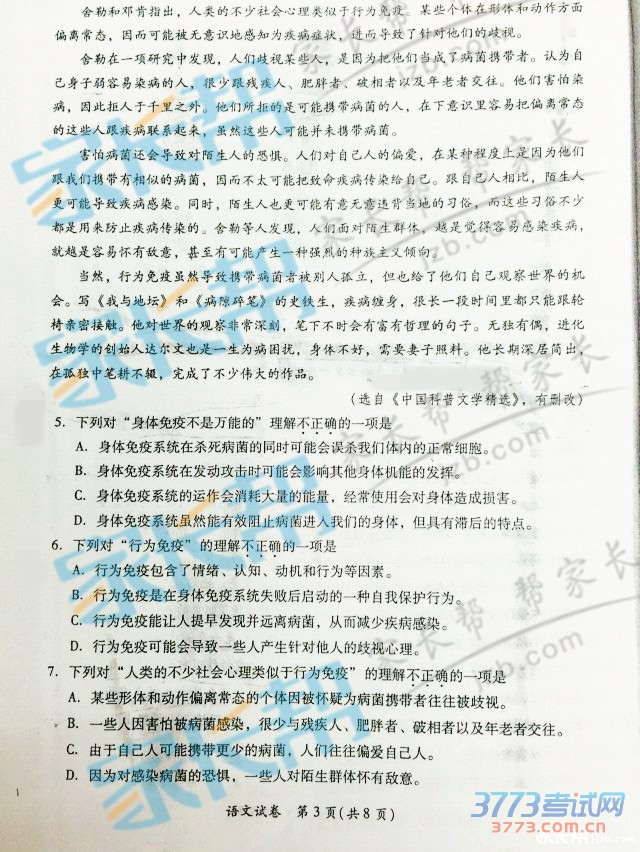 舍勒和邓肯指出，人类的不少社会心理类似于行为免疫。某些个体在形体和动作方面
偏离常态，因而可能被无意识地感知为疾病症状，进而导致了针对他们的歧视。
舍勒在一项研究中发现，人们歧视某些人，是因为把他们当成了病菌携带者。认为自
己身子弱容易染病的人，很少跟残疾人、肥胖者、破相者以及年老者交往。他们害怕染
病，因此拒人于千里之外。他们所拒的是可能携带病菌的人，在下意识里容易把偏离常态
的这些人跟疾病联系起来，虽然这些人可能并未携带病菌。
害怕病菌还会导致对陌生人的恐惧。人们对自己人的偏爱，在某种程度上是因为他们
跟我们携带有相似的病菌，因而不太可能把致命疾病传染给自己。跟自己人相比，陌生人
更可能导致疾病感染。同时，陌生人也更可能有意无意违背当地的习俗，而这些习俗不少
都是用来防止疾病传染的。舍勒等人发现，人们面对陌生群体，越是觉得容易感染疾病，
就越是容易怀有敌意，甚至有可能产生一种强烈的种族主义倾向。
当然，行为免疫虽然导致携带病菌者被别人孤立，但也给了他们自己观察世界的机
会。写《我与地坛》和《病隙碎笔》的史铁生，疾病缠身，很长一段时间里都只能跟轮
椅亲密接触。他对世界的观察非常深刻，笔下不时会有富有哲理的句子。无独有偶，进化
生物学的创始人达尔文也是一生为病困扰，身体不好，需要妻子照料。他长期深居简出，
在孤独中笔耕不辍，完成了不少伟大的作品。
（选自《中国科普文学精选》，有删改）
5．下列对“身体免疫不是万能的”理解不正确的一项是
A．身体免疫系统在杀死病菌的同时可能会误杀我们体内的正常细胞。
B．身体免疫系统在发动攻击时可能会影响其他身体机能的发挥。
C．身体免疫系统的运作会消耗大量的能量，经常使用会对身体造成损害。
D．身体免疫系统虽然能有效阻止病菌进入我们的身体，但具有滞后的特点。
6．下列对“行为免疫”的理解不正确的一项是
A．行为免疫包含了情绪、认知、动机和行为等因素。
B．行为免疫是在身体免疫系统失败后启动的一种自我保护行为。
C．行为免疫能让人提早发现并远离病菌，从而减少疾病感染。
D．行为免疫可能会导致一些人产生针对他人的歧视心理。
7．下列对“人类的不少社会心理类似于行为免疫”的理解不正确的一项是
A．某些形体和动作偏离常态的个体因被怀疑为病菌携带者往往被歧视。
B．一些人因害怕被病菌感染，很少与残疾人、肥胖者、破相者以及年老者交往。
C．由于自己人可能携带更少的病菌，人们往往偏爱自己人。
D．因为对感染病菌的恐惧，一些人对陌生群体怀有敌意。
语文试卷 第3页(共8页)
家长帮
jzb.com
3773考试网
3773.com.cn